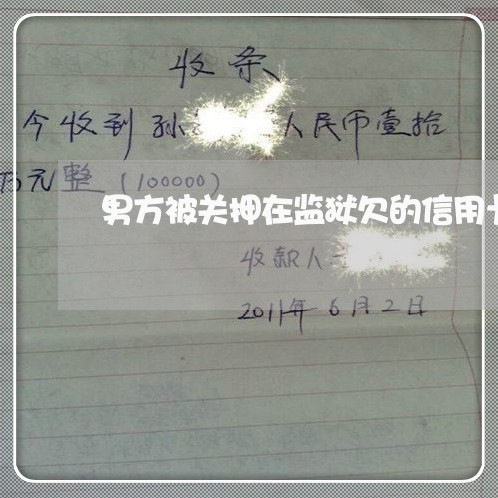 收条
今收到孙 人民币壹拾
万元整（100000）
男方被关押在监狱欠的信用卡
收款人
2011年6月2日